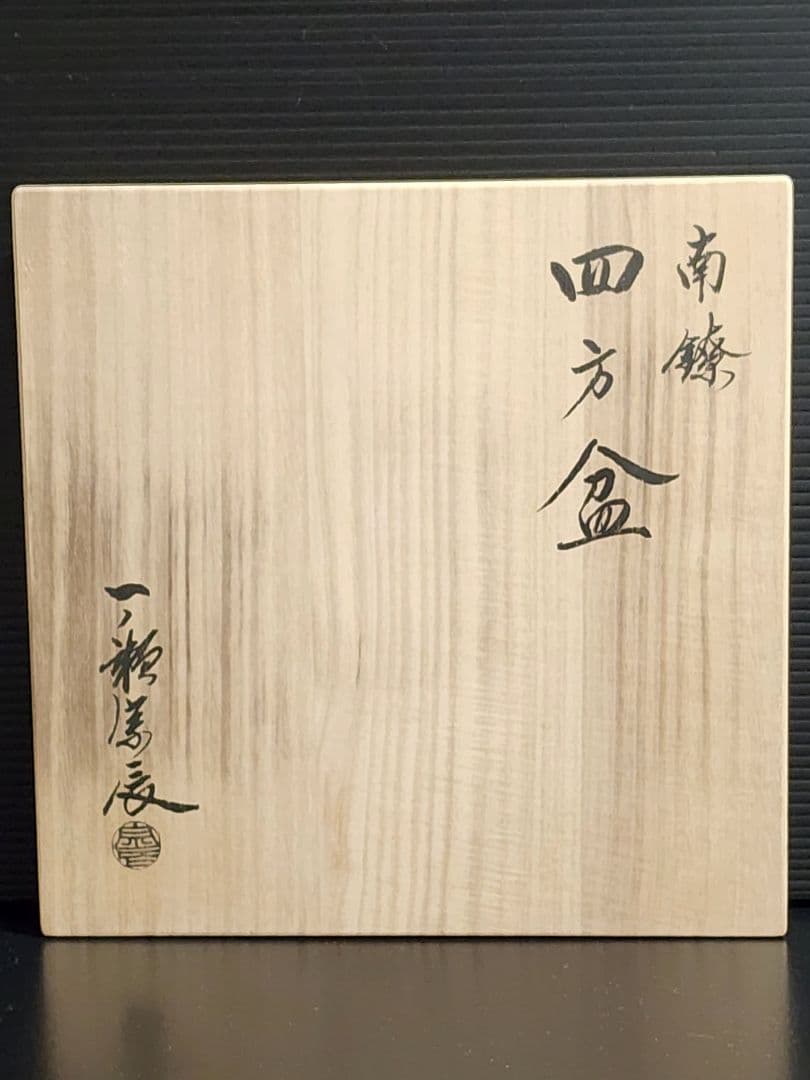 南鐐
四方盆
一ノ瀬宗辰